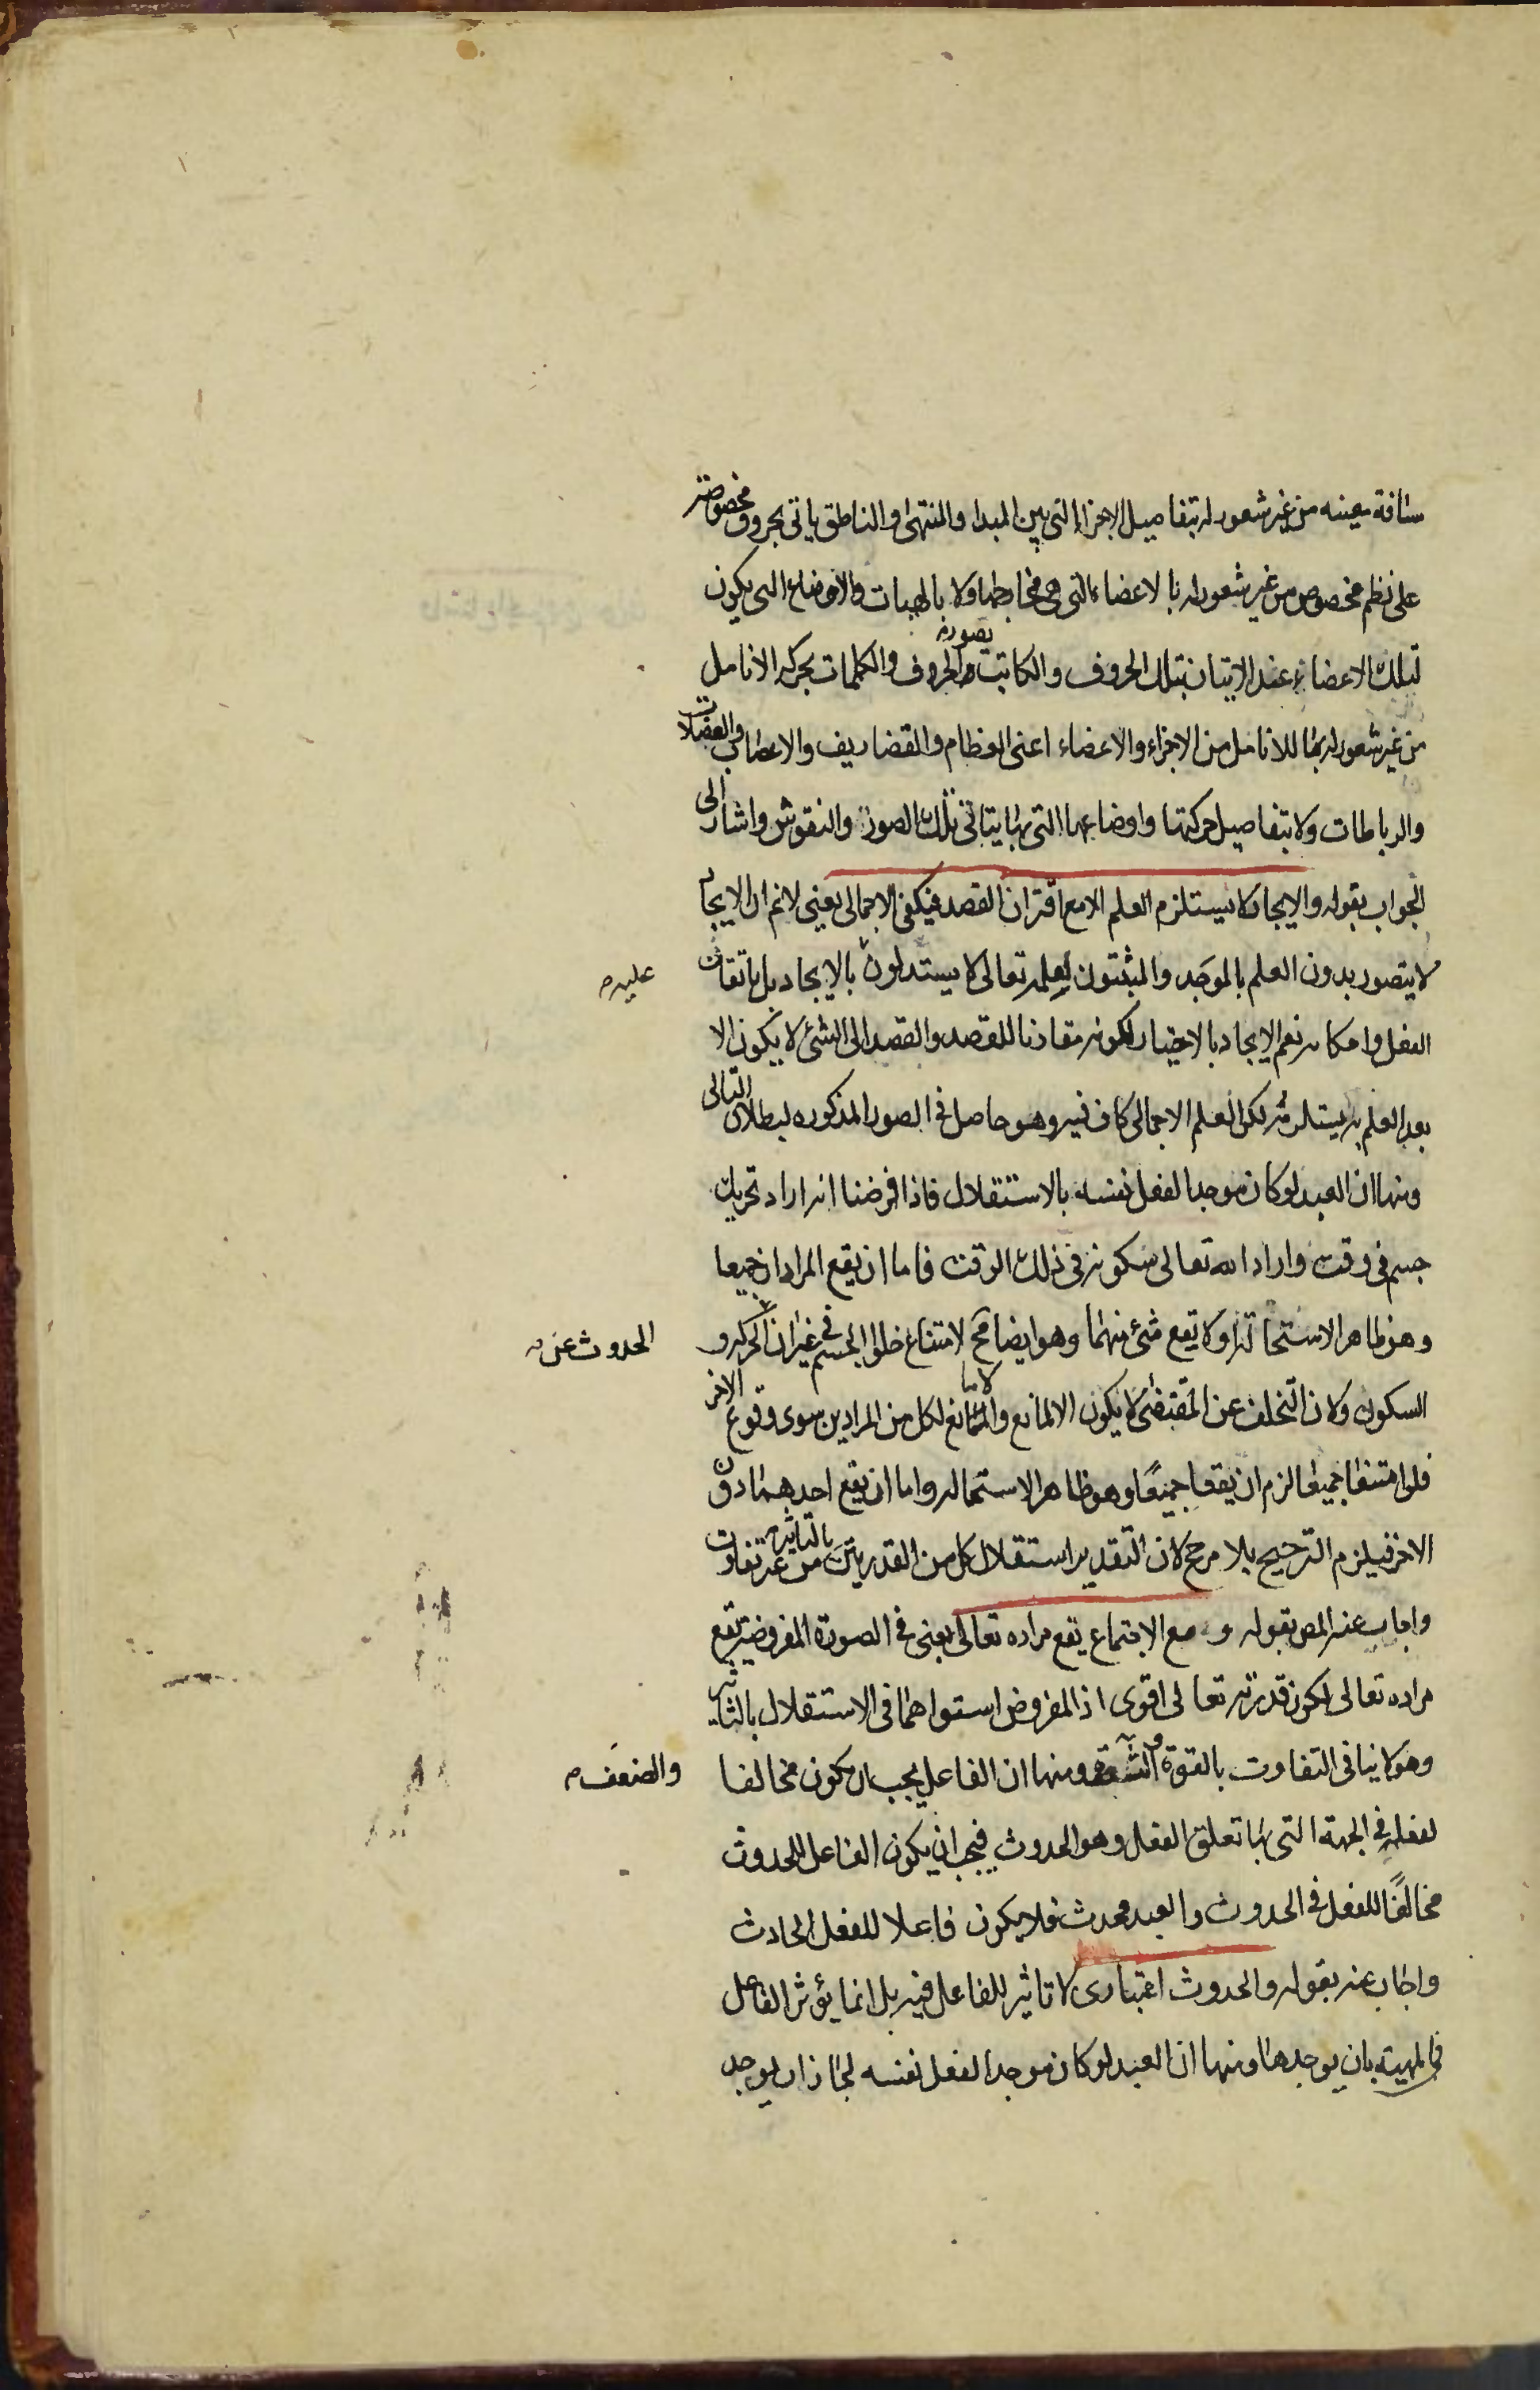 مسافة معينه من غير شعور له بتفاصيل الاجزا التى بين المبدا والمنتهى والناطق ياتى بحروف مخصوصة
على نظم مخصوص من غير شعور له بالاعضاء التى هى مخارجها ولا بالهيات والاوضاع التى يكون
لتلك الاعضاء عند الاتيان بتلك الحروف والكاتب يصور الحروف والكلمات بحركه الانامل
من غير شعور له بما للانامل من الاجزاء والاعضاء اعنى العظام والغضاريف والاعصاب والعضلات
والرباطات ولا بتفاصيل حركتها واوضاعها التى بها يتاتى تلك الصور والنقوش واشار الى
الجواب بقوله والايجاد لا يستلزم العلم الا مع اقتران القصد فيكفى الاجمالى يعنى لانم ان الايجاد
لا يتصور بدون العلم بالموجد والمثبتون لعلمه تعالى لا يستدلون بالايجاد بل باتقان
عليه
الفعل واحكامه نعم الايجاد بالاختيار لكونه مقارنا للقصد والقصد الى الشئ لا يكون الا
بعد العلم به يستلزمه لكن العلم الاجمالى كاف فيه وهو حاصل فى الصور المذكوره لبطلان التالى
ومنها ان العبد لو كان موجدا لفعل نفسه بالاستقلال فاذا فرضنا انه اراد تحريك
جسم فى وقت واراد الله تعالى سكونه فى ذلك الوقت فاما ان يقع المرادان جميعا
وهو ظاهر الاستحالة او لا يقع شئ منهما وهو ايضا مح لامتناع خلو الجسم فى غير ان الحركه و
الحدوث عن
السكون ولان التخلف عن المقتضى لا يكون الا لمانع والمانع لكل من المرادين سوى وقوع الاخر
فلو امتنعا جميعا لزم ان يقعا جميعًا وهو ظاهر الاستحاله واما ان يقع احدهما دون
الاخر فيلزم الترجيح بلا مرجح لان التقدير استقلال كل من القدرتين بالتاثير من غير تفاوت
واجاب عنه المص بقوله و مع الاجتماع يقع مراده تعالى يعنى فى الصورة المفروضه يقع
مراده تعالى لكون قدرته تعالى اقوى اذ المفروض استواهما فى الاستقلال بالتاثير
وهو لا ينافى التفاوت بالقوة ومنها ان الفاعل يجب ان يكون مخالفا
والضعف
لفعله فى الجهة التى بها تعلق الفعل وهو الحدوث فيجب ان يكون الفاعل للحدوث
مخالفًا للفعل فى الحدوث والعبد محدث فلا يكون فاعلا للفعل الحادث
واجاب عنه بقوله والحدوث اعتبارى لا تاثير للفاعل فيه بل انما يؤثر الفاعل
فى المهية بان يوجدها ومنها ان العبد لو كان موجدا لفعل نفسه لجاز ان يوجد